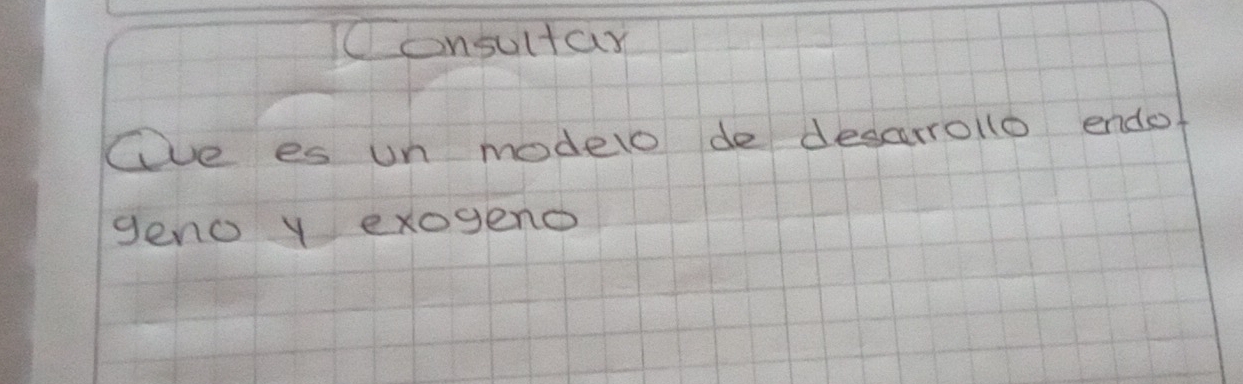 Consultar
Que es un modelo de desarrollo endo-
geno y exogeno